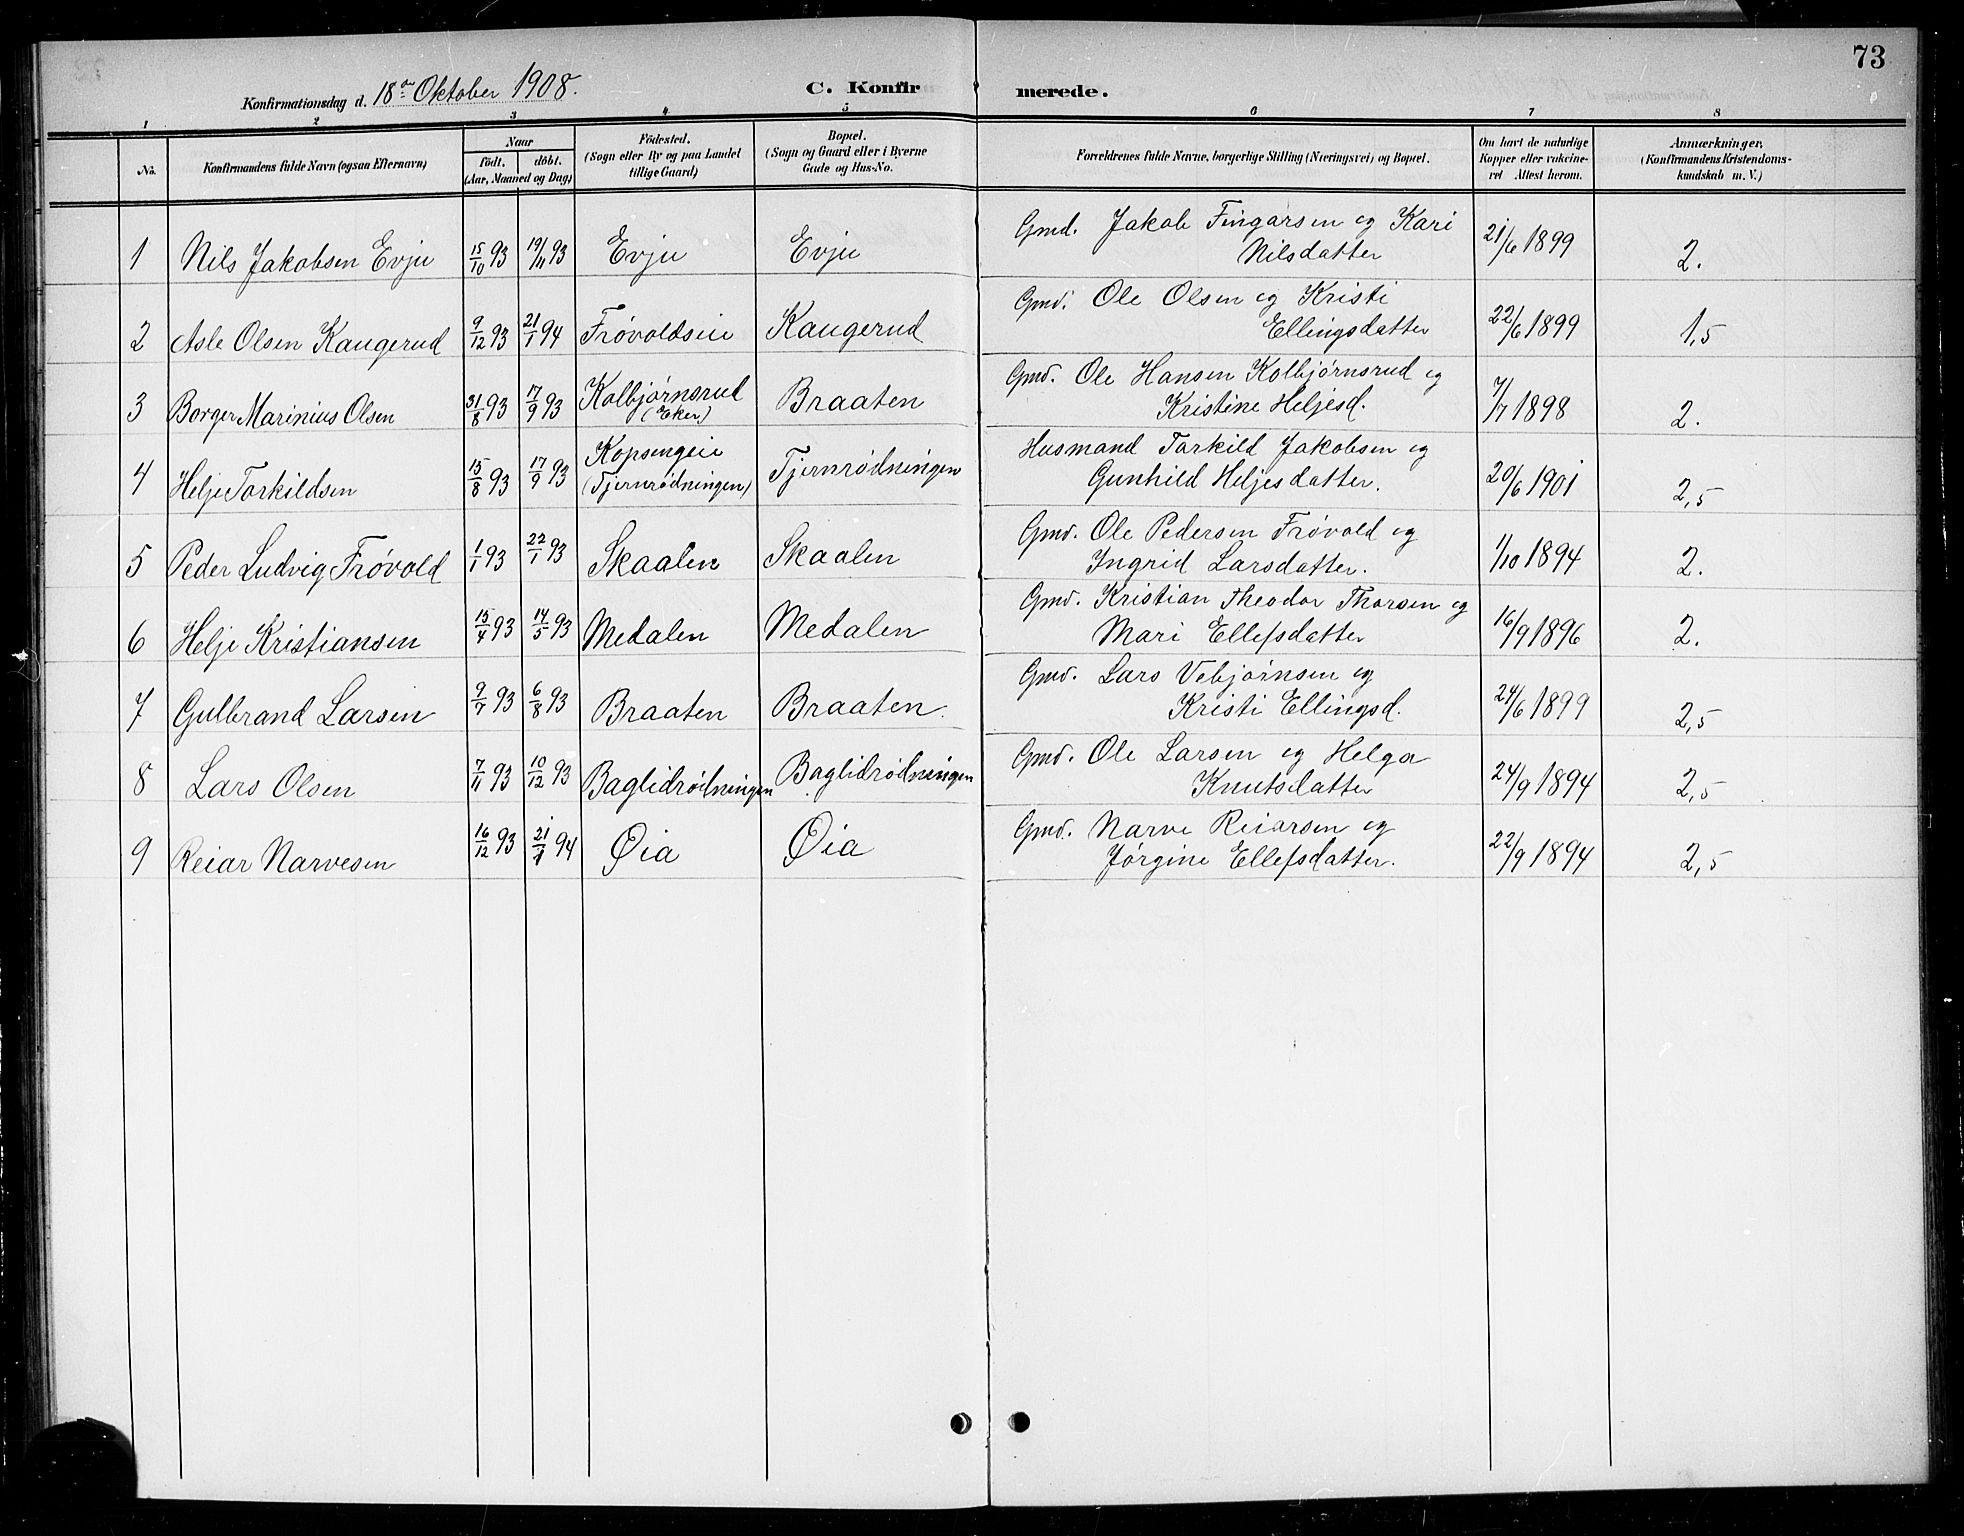 73
Konfirmationsdag d. 18de Oktober 1908.
C. Konfirmerede.
1 2 3 4 5 6 7 8
No.
Konfirmandens fulde Navn (ogsaa Efternavn)
Naar
födt. döbt.
(Aar, Maaned og Dag)
Födested.
(Sogn eller By og paa Landet
tillige Gaard)
Bopæl.
(Sogn og Gaard eller i Byerne
Gade og Hus-No.
Forældrenes fulde Navne, borgerlige Stilling (Næringsvei) og Bopæl.
Om havt de naturlige
Kopper eller vakcine-
ret Attest herom.
Anmærkninger,
(Konfirmandens Kristendoms-
kundskab m. V.)
1 Nils Jakobsen Evju 15/10 93 19/11 93 Evju Evju Gmd. Jakob Fingarsen og Kari
Nilsdatter 21/6 1899 2.
2 Asle Olsen Kaugerud 9/12 93 21/1 94 Frøvoldseie Kaugerud Gmd. Ole Olsen og Kristi
Ellingsdatter 22/6 1899 1,5
3 Borger Marinius Olsen 31/8 93 17/9 93 Kolbjørnsrud
(Eker) Braaten Gmd. Ole Hansen Kolbjørnsrud og
Kristine Heljesd. 7/7 1898 2.
4 Helje Torkildsen 15/8 93 17/9 93 Kopsengeie
(Tjernrødningen) Tjernrødningen Husmand Torkild Jakobsen og
Gunhild Heljesdatter. 20/6 1901 2,5
5 Peder Ludvig Frøvold 1/1 93 22/1 93 Skaalen Skaalen Gmd. Ole Pedersen Frøvold og
Ingrid Larsdatter. 1/10 1894 2.
6 Helje Kristiansen 15/4 93 14/5 93 Medalen Medalen Gmd. Kristian Theodor Thorsen og
Mari Ellefsdatter 16/9 1896 2.
7 Gulbrand Larsen 9/7 93 6/8 93 Braaten Braaten. Gmd. Lars Vebjørnsen og
Kristi Ellingsd. 24/6 1899 2,5
8 Lars Olsen 7/11 93 10/12 93 Baglidrødningen Baglidrødningen Gmd. Ole Larsen og Helga
Knutsdatter 24/9 1894 2,5
9 Reiar Narvesen 16/12 93 21/1 94 Øia Øia Gmd. Narve Reiarsen og
Jørgine Ellefsdatter. 22/9 1894 2,5